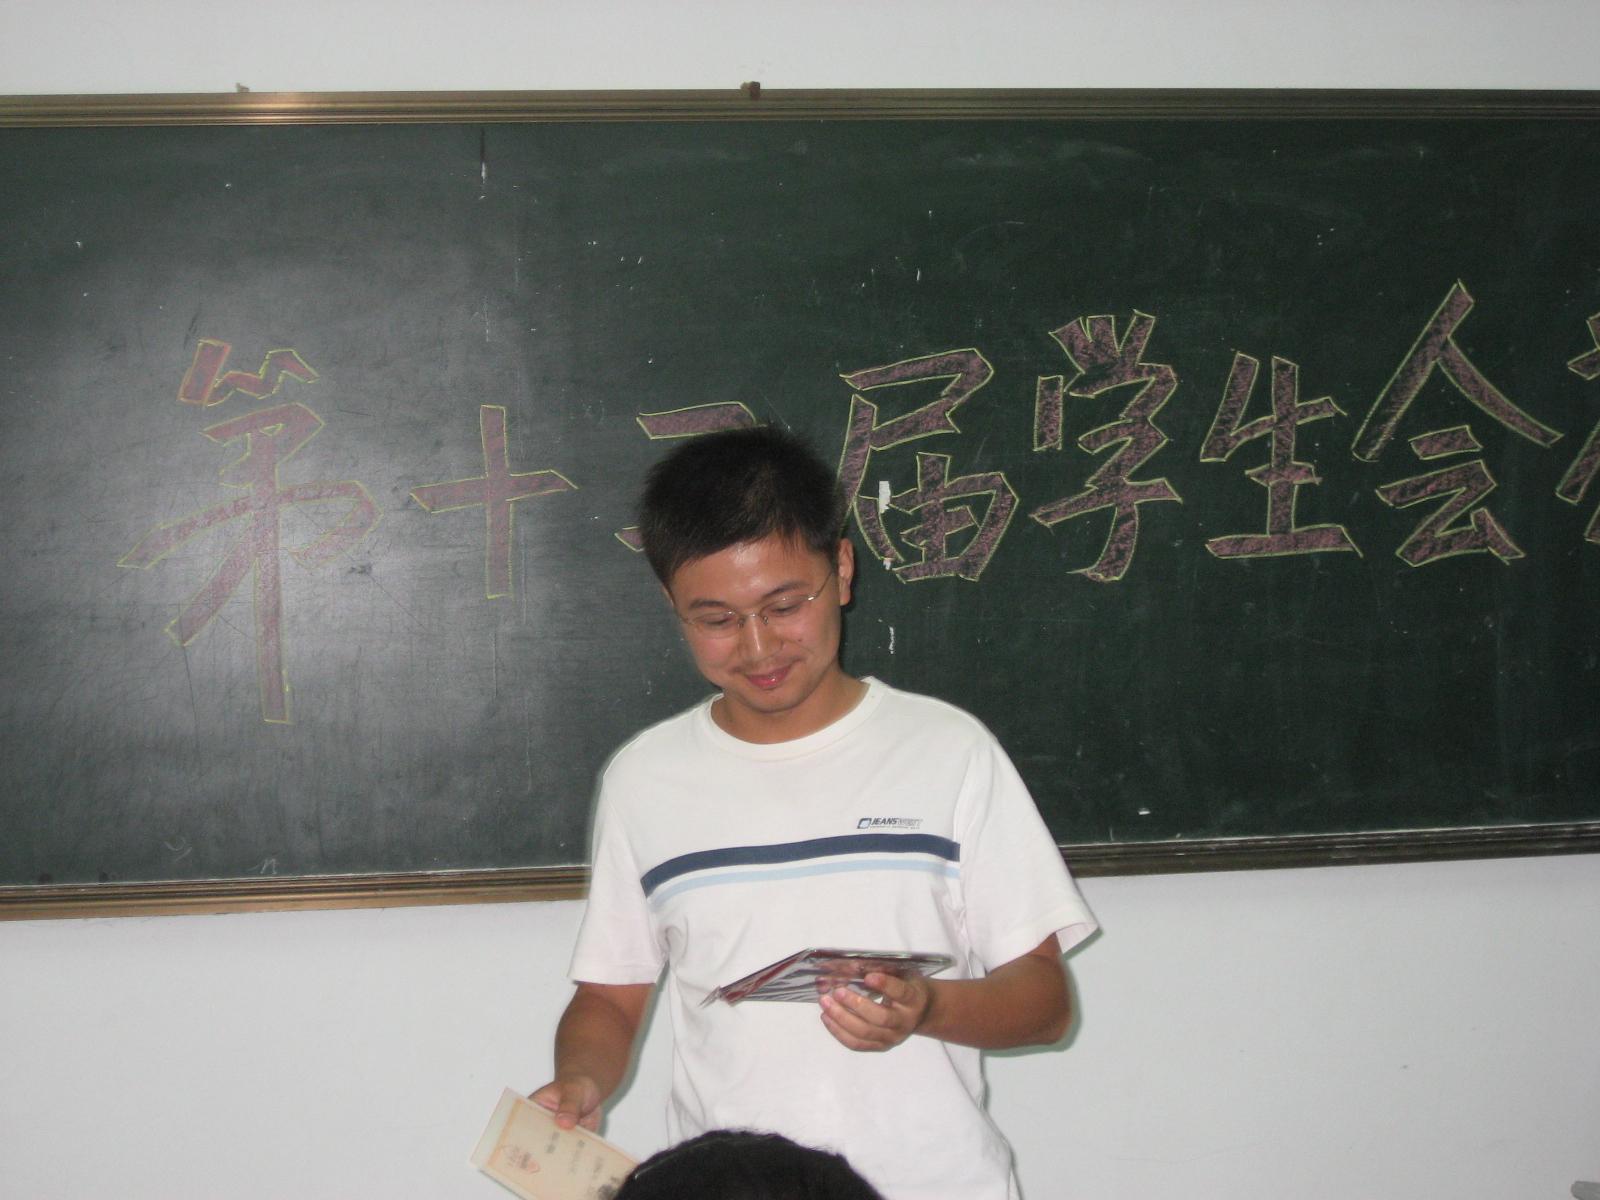 第十二届学生会
JEANSWEST